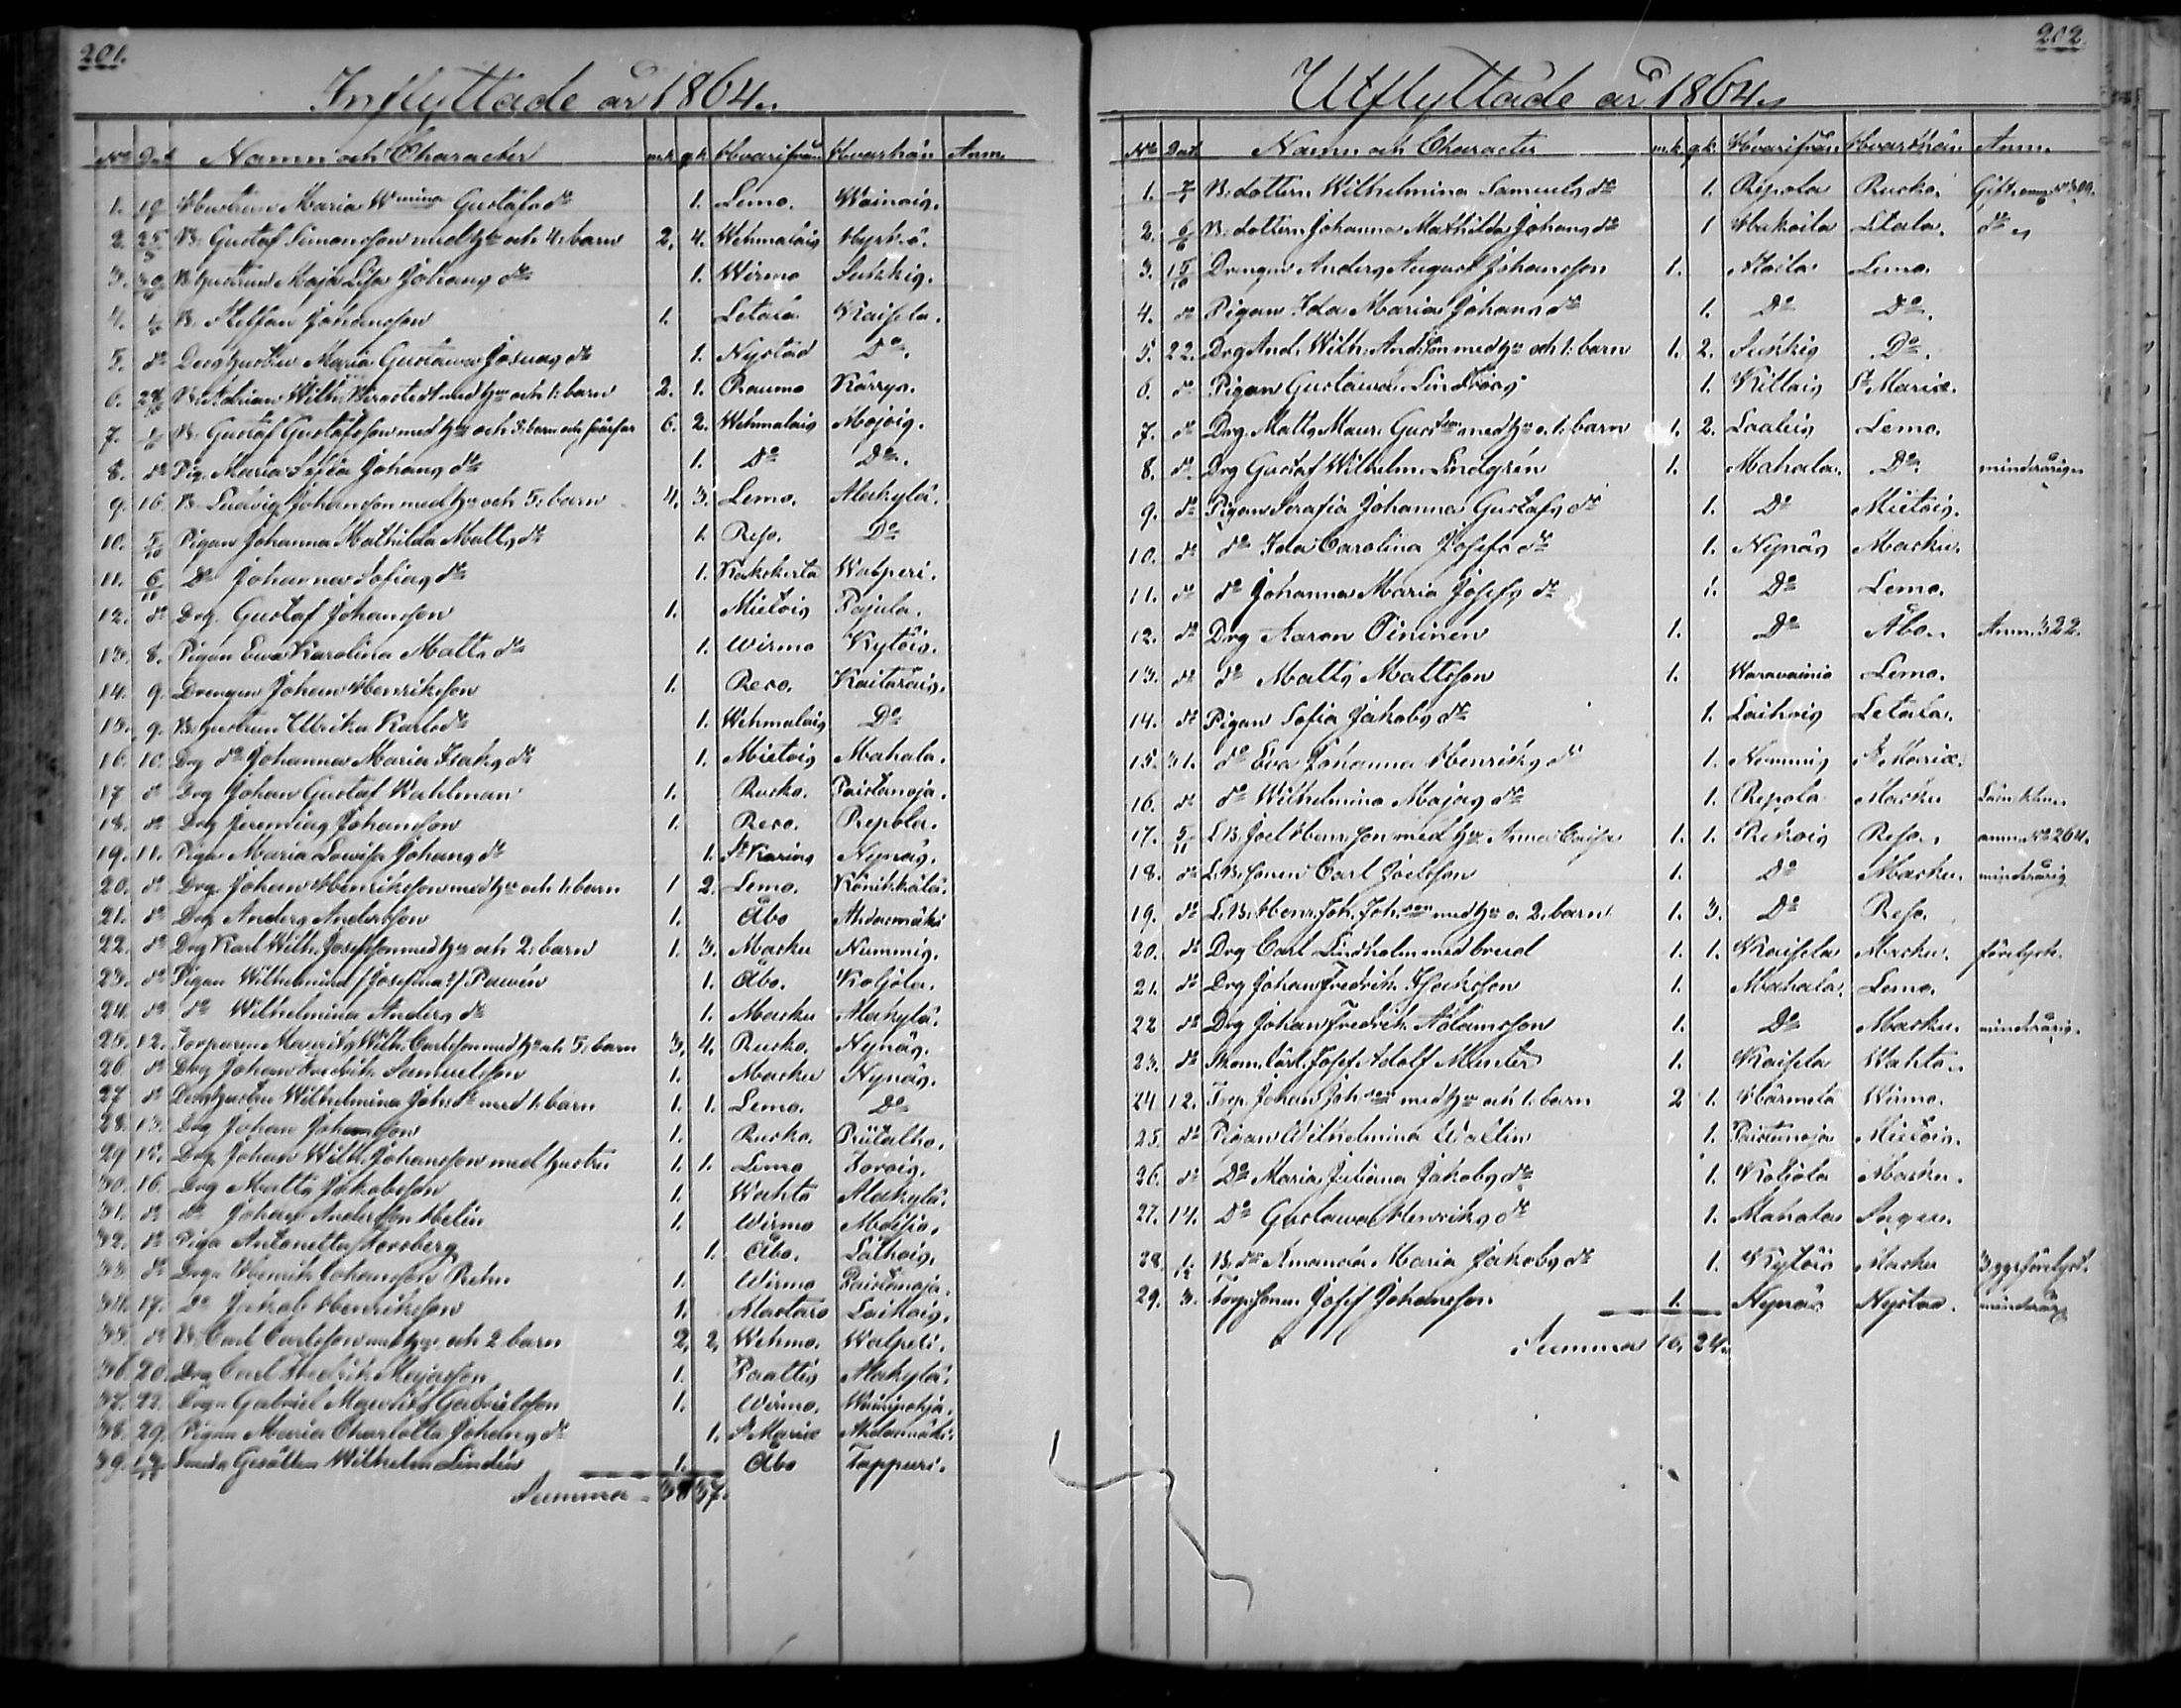 201.
Inflyttade år 1864.
No Dat Namn och Character m.k. q.k. Hvarifrån Hvarthän Anm.
1. 19 Hustrun Maria Wmina Gustafs dr 1. Lemo. Wainois.
2. 25/3 B. Gustaf Simonsson med h:u och 4. barn 2. 4. Wehmalais
3. 30 B. hustrun Maja Lisa Johans dr 1. Wirmo Suikkis.
4. B. Stefan Johansson 1. Letala Kaisela.
5. dr Maria Gustawa Josuas dr 1. Nystad Do.
6. B. Adrian Wilh. med h:u och 1. barn 2. 1. Raumo Kärrys.
7. B. Gustaf Gustafsson med h:u och 5. barn och svärfar 6. 2. Wehmalais
8. dr Pig. Maria Sofia Johans dr 1. Do Do.
9. 16. B. Ludvig Johansson med h:u och 5. barn 4. 3. Lemo. Alakylä.
10. 5/10 Pigan Johanna Mathilda Matts dr 1. Reso. Do
11. 6/11 Do Johanna Sofias dr 1. Kakskerta Walperi.
12. dr Drg. Gustaf Johansson 1. Mietois Pajula.
13. 8. Pigan Eva Karolina Matts dr 1. Wirmo Kytöis.
14. 9. Drengen Johan Henriksson 1. Reso. Kaitarais.
15. 9. B. hustrun Ulrika Karls dr 1. Wehmalais Do
16. 10. Drg dr Johanna Maria Isaks dr 1. Mietois Mahala.
17 dr Drg Johan Gustaf Wahlman 1. Rusko. Paistanoja.
18. dr Drg Jeremias Johansson 1. Reso. Repola.
19. 11. Pigan Maria Lovisa Johans dr 1. St Karins Nynäs.
20. dr Drg. Johan Henriksson med h:u och 1. barn 1 2. Lemo. Könikkälä.
21. dr Drg Anders Andersson 1. Åbo Ahdenmäki
22. dr Drg Karl Wilh. Josefsson med h:u och 2. barn 1. 3. Masku Nummis.
23. dr Pigan Wilhelmina /Josefina?/ Pawén 1. Åbo. Koljola.
24. dr dr Wilhelmina Anders dr 1. Masku Alakylä.
25. 12. Torparen Maurits Wilh. Carlsson med h:u och 5. barn 3. 4. Rusko. Nynäs.
26. dr Drg Johan Fredrik Samuelsson 1. Masku Nynäs.
27 dr Wilhelmina Joh. dr med 1. barn 1. 1. Lemo. Do
28. 13. Drg Johan Johansson 1. Rusko.
29 15. Drg. Johan Wilh. Johansson med hustru 1. 1. Lemo
30. 16. Drg Matts Jakobsson 1. Wahto Alakylä.
31. dr dr Johan Andersson Helin 1. Wirmo Moisio.
32. dr Piga Antonetta Forsberg 1. Åbo. Laihois.
33. dr Drgn Henrik Johansson Rehn 1. Wirmo Paistanoja.
34. 17. Do Jakob Henriksson 1. Alastaro Laihois.
35. dr B. Carl Carlsson med h:u och 2 barn 2. 2. Wehmo. Walperi.
36. 20. Drg Carl Fredrik Majasson 1. Paattis Alakylä.
37. 22. Drgn Gabriel Maurits Gabrielsson 1. Wirmo.
38. 29. Pigan Maria Charlotta Johans dr 1. St Mariæ Ahdenmäki.
39. Smeds Gesällen Wilhelm Lindén 1. Åbo Tappuri.
Summa 38 37.
202.
Utflyttade år 1864.
No Dat Namn och Character m.k. q.k. Hvarifrån Hvarthän Anm.
1. B. dottern Wilhelmina Samuels dr 1. Repola Rusko. Gift. anm. No 300.
2. 6 B. dottern Johanna Mathilda Johans dr 1 Hakoila Letala. dr
3. 15/10 Drengen Anders August Johansson 1. Aloila Lemo.
4. dr Pigan Ida Maria Johans dr 1. Do Do.
5. 22. Drg And. Wilh. And.son med h:u och 1. barn 1. 2. Suikkis Do.
6. dr Pigan Gustawa Lindroos 1. Killais St Mariæ.
7. dr Drg. Matts Maur. Gust.son med h:u o. 1. barn 1. 2. Laalis Lemo.
8. dr Drg Gustaf Wilhelm Lindgrén 1. Mahala. Do. minderårig
9. dr Pigan Serafia Johanna Gustafs dr 1. Do Mietois.
10. dr dr Ida Carolina Josefs dr 1. Nynäs Masku.
11. dr dr Johanna Maria Josefs dr 1. Do Lemo.
12. dr Drg Aaron Oininen 1. Do Åbo. Anm. 322.
13. dr dr Matts Mattsson 1. Waravainio Lemo.
14. dr Pigan Sofia Jakobs dr 1. Laihois Letala.
15. 31. dr Eva Johanna Henriks dr 1. Nummis St Mariæ.
16. dr dr Wilhelmina Majas dr 1. Repola Masku
17. 5/11 L.B. Joel Henr.son med h:u Anna Caisa 1. 1. Riskois Reso. anm. No 264.
18. dr L.B. sonen Carl Joelsson 1. Do Masku. minderårig
19. dr L.B. Henr. Joh. Joh.son med h:u o. 2. barn 1. 3. Do Reso.
20. dr Drg Carl Lindholm med brud 1. 1. Kaisela Masku. förelyst.
21. dr Drg Johan Fredrik Isaksson 1. Mahala. Lemo.
22 dr Drg Johan Fredrik Adamsson 1. Do Masku. minderårig.
23. dr Skom. lärl. Josef Adolf Munter 1. Kaisela Wahto.
24 12. Torp. Johan Joh.son med h:u och 1. barn 2 1. Härmelä Wirmo.
25. dr Pigan Wilhelmina Wallin 1. Paistanoja Mietois.
26. dr Do Maria Juliana Jakobs dr 1. Koljola Masku.
27. 14. Do Gustawa Henriks dr 1. Mahala Sagu.
28. 1/12 B. dr Amanda Maria Jakobs dr 1. Kytöis Masku 3 ggr förelyst.
29. 3. Torp. sonen Josef Johansson 1. Nynäs Nystad. minderårig
Summa 16. 24.